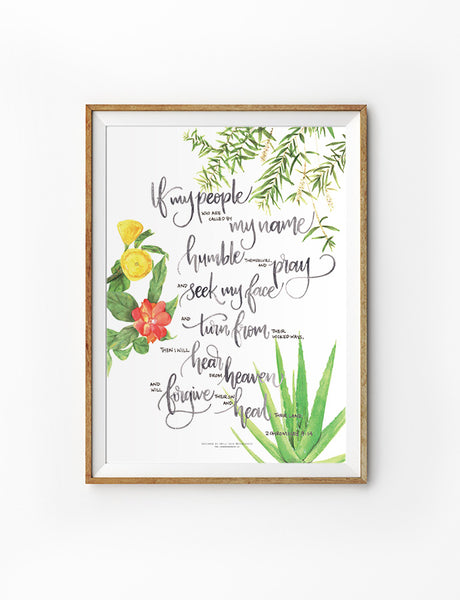 If my people
WHO ARE
CALLED BY
my name
humble THEMSELVES, AND pray
AND seek my face
AND turn from THEIR WICKED WAYS,
THEN I WILL hear
FROM heaven
AND WILL forgive THEIR SIN AND heal THEIR LAND.
2 CHRONICLES 7:14